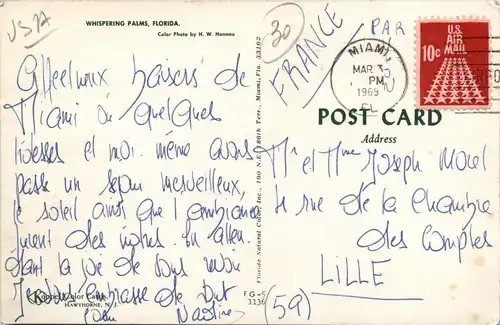 USA
WHISPERING PALMS, FLORIDA.
Color Photo by H. W. Hannau
30
FRANCE
PAR
MIAMI
MAR 3
PM
1969
FL
U.S.
AIR
MAIL
10c
Affectueux baisers de
Miami où quelques
hôtesses et moi-même avons
passé un séjour merveilleux,
le soleil ainsi que l'ambiance
étaient des nôtres. En atten-
dant la joie de vous
Je vous embrasse de tout
Nadine
Koppel Color Cards
HAWTHORNE, N. J.
Florida Natural Color, Inc., 190 N.E. 186th Terr., Miami, Fla. 33162
POST CARD
Address
Mr et Mme Joseph Morel
4 rue de la Chambre
des Comptes
LILLE
(59)
FG-5
1136